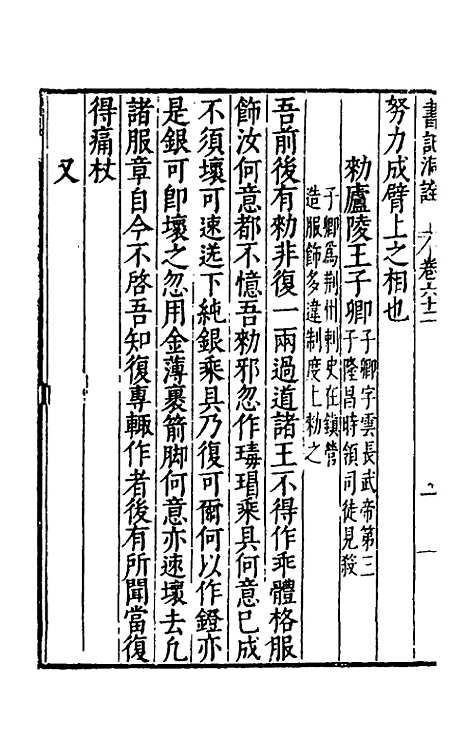 書記洞詮 卷六十二
努力成臂上之相也
勑廬陵王子卿
子卿字雲長武帝第三
子隆昌時領司徒見殺
子卿爲荆州刺史在鎮營
造服飾多違制度上勑之
吾前後有勑非復一兩過道諸王不得作乖體格服
飾汝何意都不憶吾勑邪忽作瑇瑁乘具何意已成
不須壞可速送下純銀乘具乃復可爾何以作鐙亦
是銀可即壞之忽用金薄裹箭脚何意亦速壞去凢
諸服章自今不啓吾知復專輒作者後有所聞當復
得痛杖
又